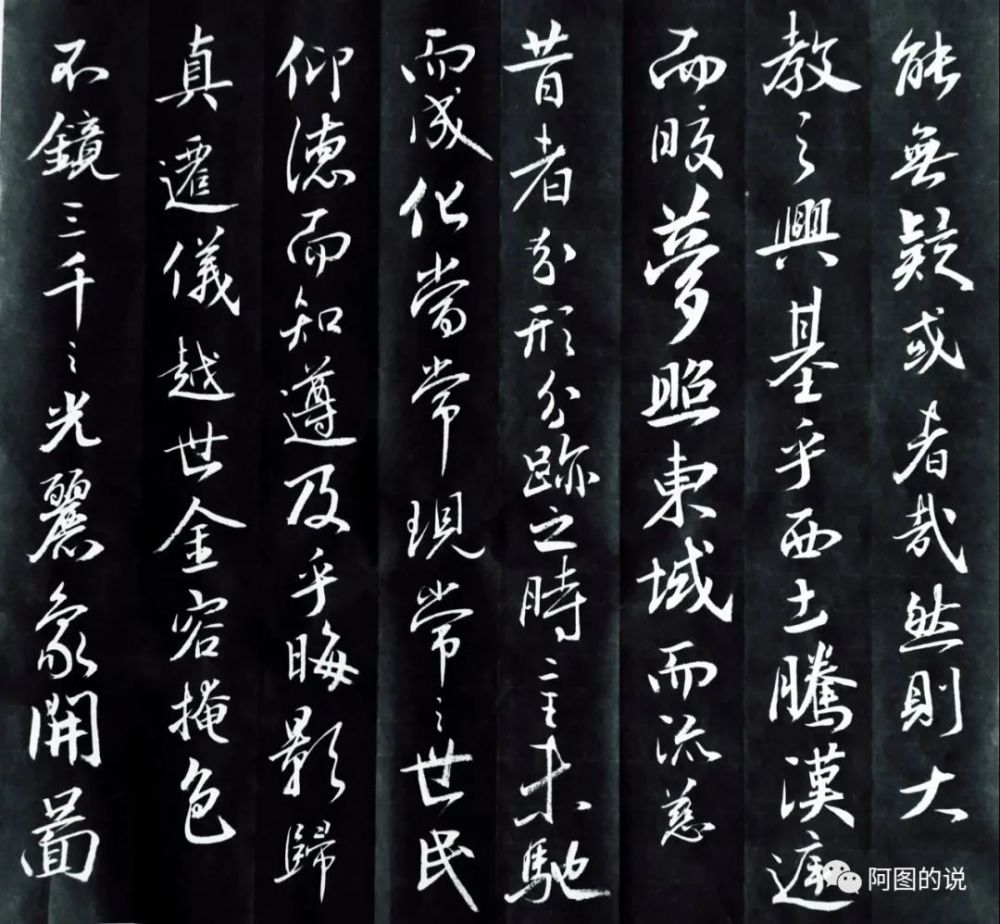 能無疑或者哉然則大
教之興基乎西土騰漢庭
而皎夢照東域而流慈
昔者分形分跡之時言未馳
而成化當常現常之世民
仰德而知遵及乎晦影歸
真遷儀越世金容掩色
不鏡三千之光麗象開圖
阿图的说